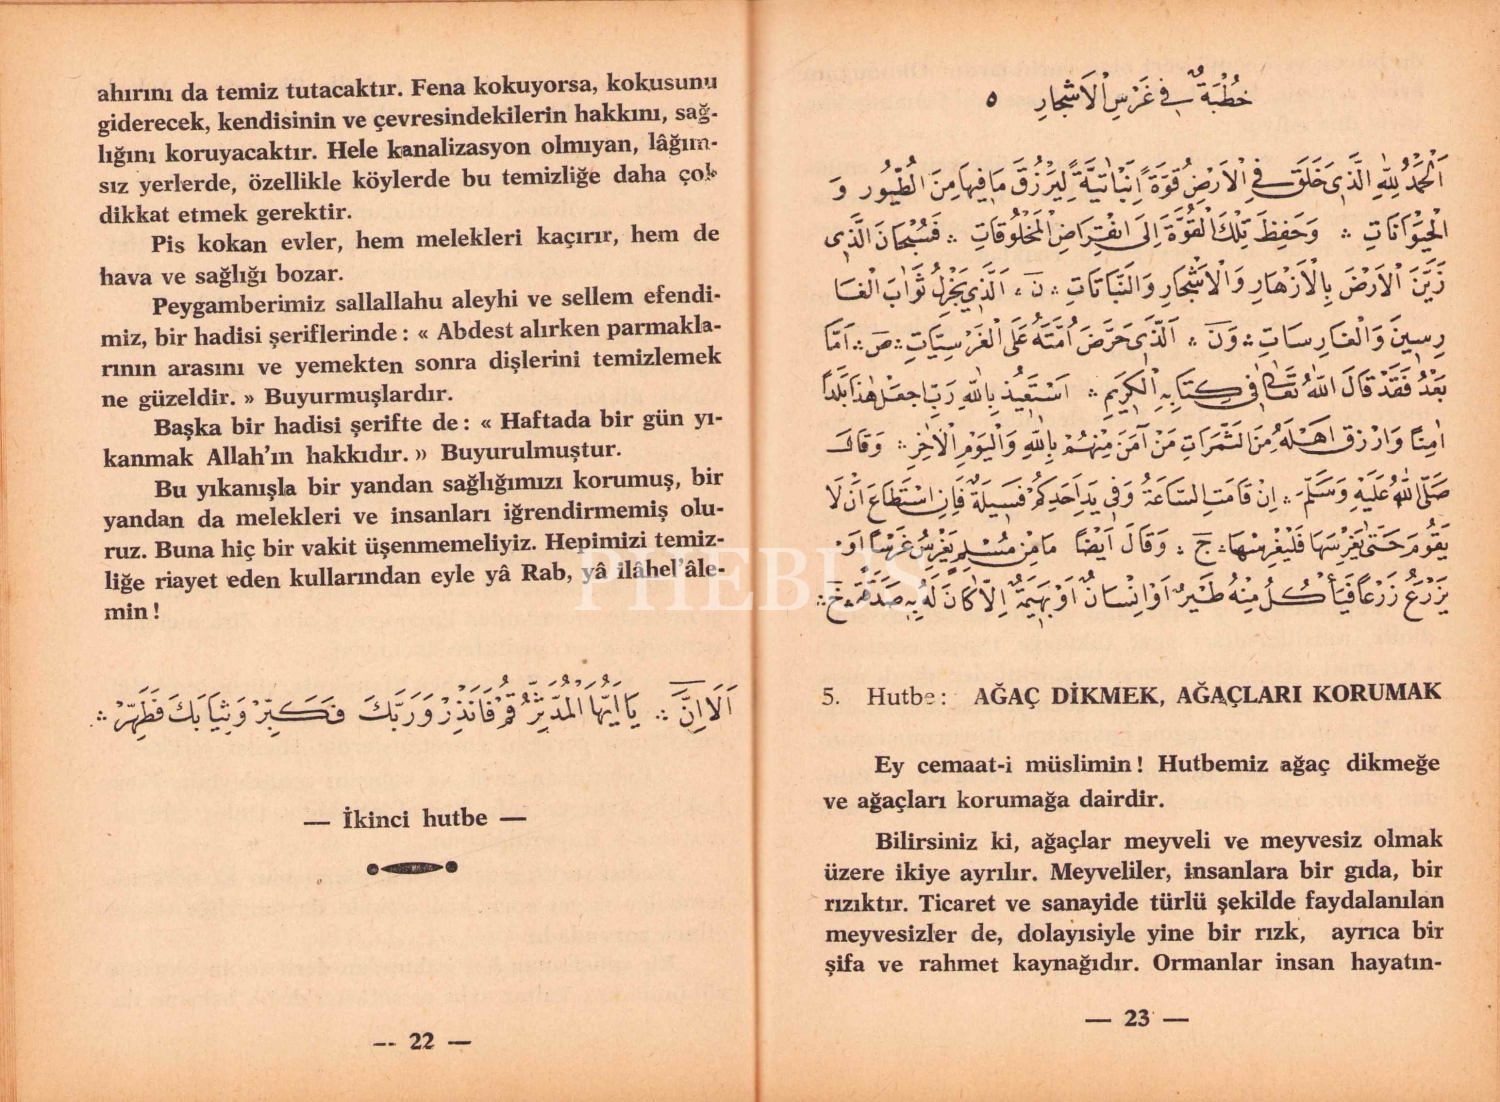 ahırını da temiz tutacaktır. Fena kokuyorsa, kokusunu
giderecek, kendisinin ve çevresindekilerin hakkını, sağ-
lığını koruyacaktır. Hele kanalizasyon olmıyan, lâğım-
sız yerlerde, özellikle köylerde bu temizliğe daha çok
dikkat etmek gerektir.
Pis kokan evler, hem melekleri kaçırır, hem de
hava ve sağlığı bozar.
Peygamberimiz sallallahu aleyhi ve sellem efendi-
miz, bir hadisi şeriflerinde : « Abdest alırken parmakla-
rının arasını ve yemekten sonra dişlerini temizlemek
ne güzeldir. » Buyurmuşlardır.
Başka bir hadisi şerifte de : « Haftada bir gün yı-
kanmak Allah'ın hakkıdır. » Buyurulmuştur.
Bu yıkanışla bir yandan sağlığımızı korumuş, bir
yandan da melekleri ve insanları iğrendirmemiş olu-
ruz. Buna hiç bir vakit üşenmemeliyiz. Hepimizi temiz-
liğe riayet eden kullarından eyle yâ Rab, yâ ilâhel'âle-
min !
اَلَا اِنَّ ∴ يَا اَيُّهَا الْمُدَّثِّرُ قُمْ فَاَنْذِرْ وَرَبَّكَ فَكَبِّرْ وَثِيَابَكَ فَطَهِّرْ ∴
— İkinci hutbe —
— 22 —
خُطْبَةٌ فِي غَرْسِ الْاَشْجَارِ ٥
اَلْحَمْدُ لِلّٰهِ الَّذِي خَلَقَ فِي الْاَرْضِ قُوَّةً اِنْبَاتِيَّةً لِيَرْزُقَ مَا فِيهَا مِنَ الطُّيُورِ وَ
الْحَيَوَانَاتِ ∴ وَحَفِظَ تِلْكَ الْقُوَّةَ اِلَى انْقِرَاضِ الْمَخْلُوقَاتِ ∴ فَسُبْحَانَ الَّذِي
زَيَّنَ الْاَرْضَ بِالْاَزْهَارِ وَالْاَشْجَارِ وَالنَّبَاتَاتِ ∴ نَ ∴ اَلَّذِي يُجْزِلُ ثَوَابَ الْغَا
رِسِينَ وَالْغَارِسَاتِ ∴ وَنَ ∴ اَلَّذِي حَرَّضَ اُمَّتَهُ عَلَى الْغَرْسِيَّاتِ ∴ صَ ∴ اَمَّا
بَعْدُ فَقَدْ قَالَ اللّٰهُ تَعَالٰى فِي كِتَابِهِ الْكَرِيمِ ∴ اَسْتَعِيذُ بِاللّٰهِ رَبِّ اجْعَلْ هٰذَا بَلَدًا
اٰمِنًا وَارْزُقْ اَهْلَهُ مِنَ الثَّمَرَاتِ مَنْ آمَنَ مِنْهُمْ بِاللّٰهِ وَالْيَوْمِ الْاٰخِرِ ∴ وَقَالَ
صَلَّى اللّٰهُ عَلَيْهِ وَسَلَّمَ ∴ اِنْ قَامَتِ السَّاعَةُ وَفِي يَدِ اَحَدِكُمْ فَسِيلَةٌ فَاِنِ اسْتَطَاعَ اَنْ لَا
يَقُومَ حَتّٰى يَغْرِسَهَا فَلْيَغْرِسْهَا ∴ جَ ∴ وَقَالَ اَيْضًا مَا مِنْ مُسْلِمٍ يَغْرِسُ غَرْسًا اَوْ
يَزْرَعُ زَرْعًا فَيَأْكُلُ مِنْهُ طَيْرٌ اَوْ اِنْسَانٌ اَوْ بَهِيمَةٌ اِلَّا كَانَ لَهُ بِهِ صَدَقَةٌ ∴ خَ ∴
5. Hutbe : AĞAÇ DİKMEK, AĞAÇLARI KORUMAK
Ey cemaat-i müslimin ! Hutbemiz ağaç dikmeğe
ve ağaçları korumağa dairdir.
Bilirsiniz ki, ağaçlar meyveli ve meyvesiz olmak
üzere ikiye ayrılır. Meyveliler, insanlara bir gıda, bir
rızıktır. Ticaret ve sanayide türlü şekilde faydalanılan
meyvesizler de, dolayısiyle yine bir rızk, ayrıca bir
şifa ve rahmet kaynağıdır. Ormanlar insan hayatın-
— 23 —
PHEBUS